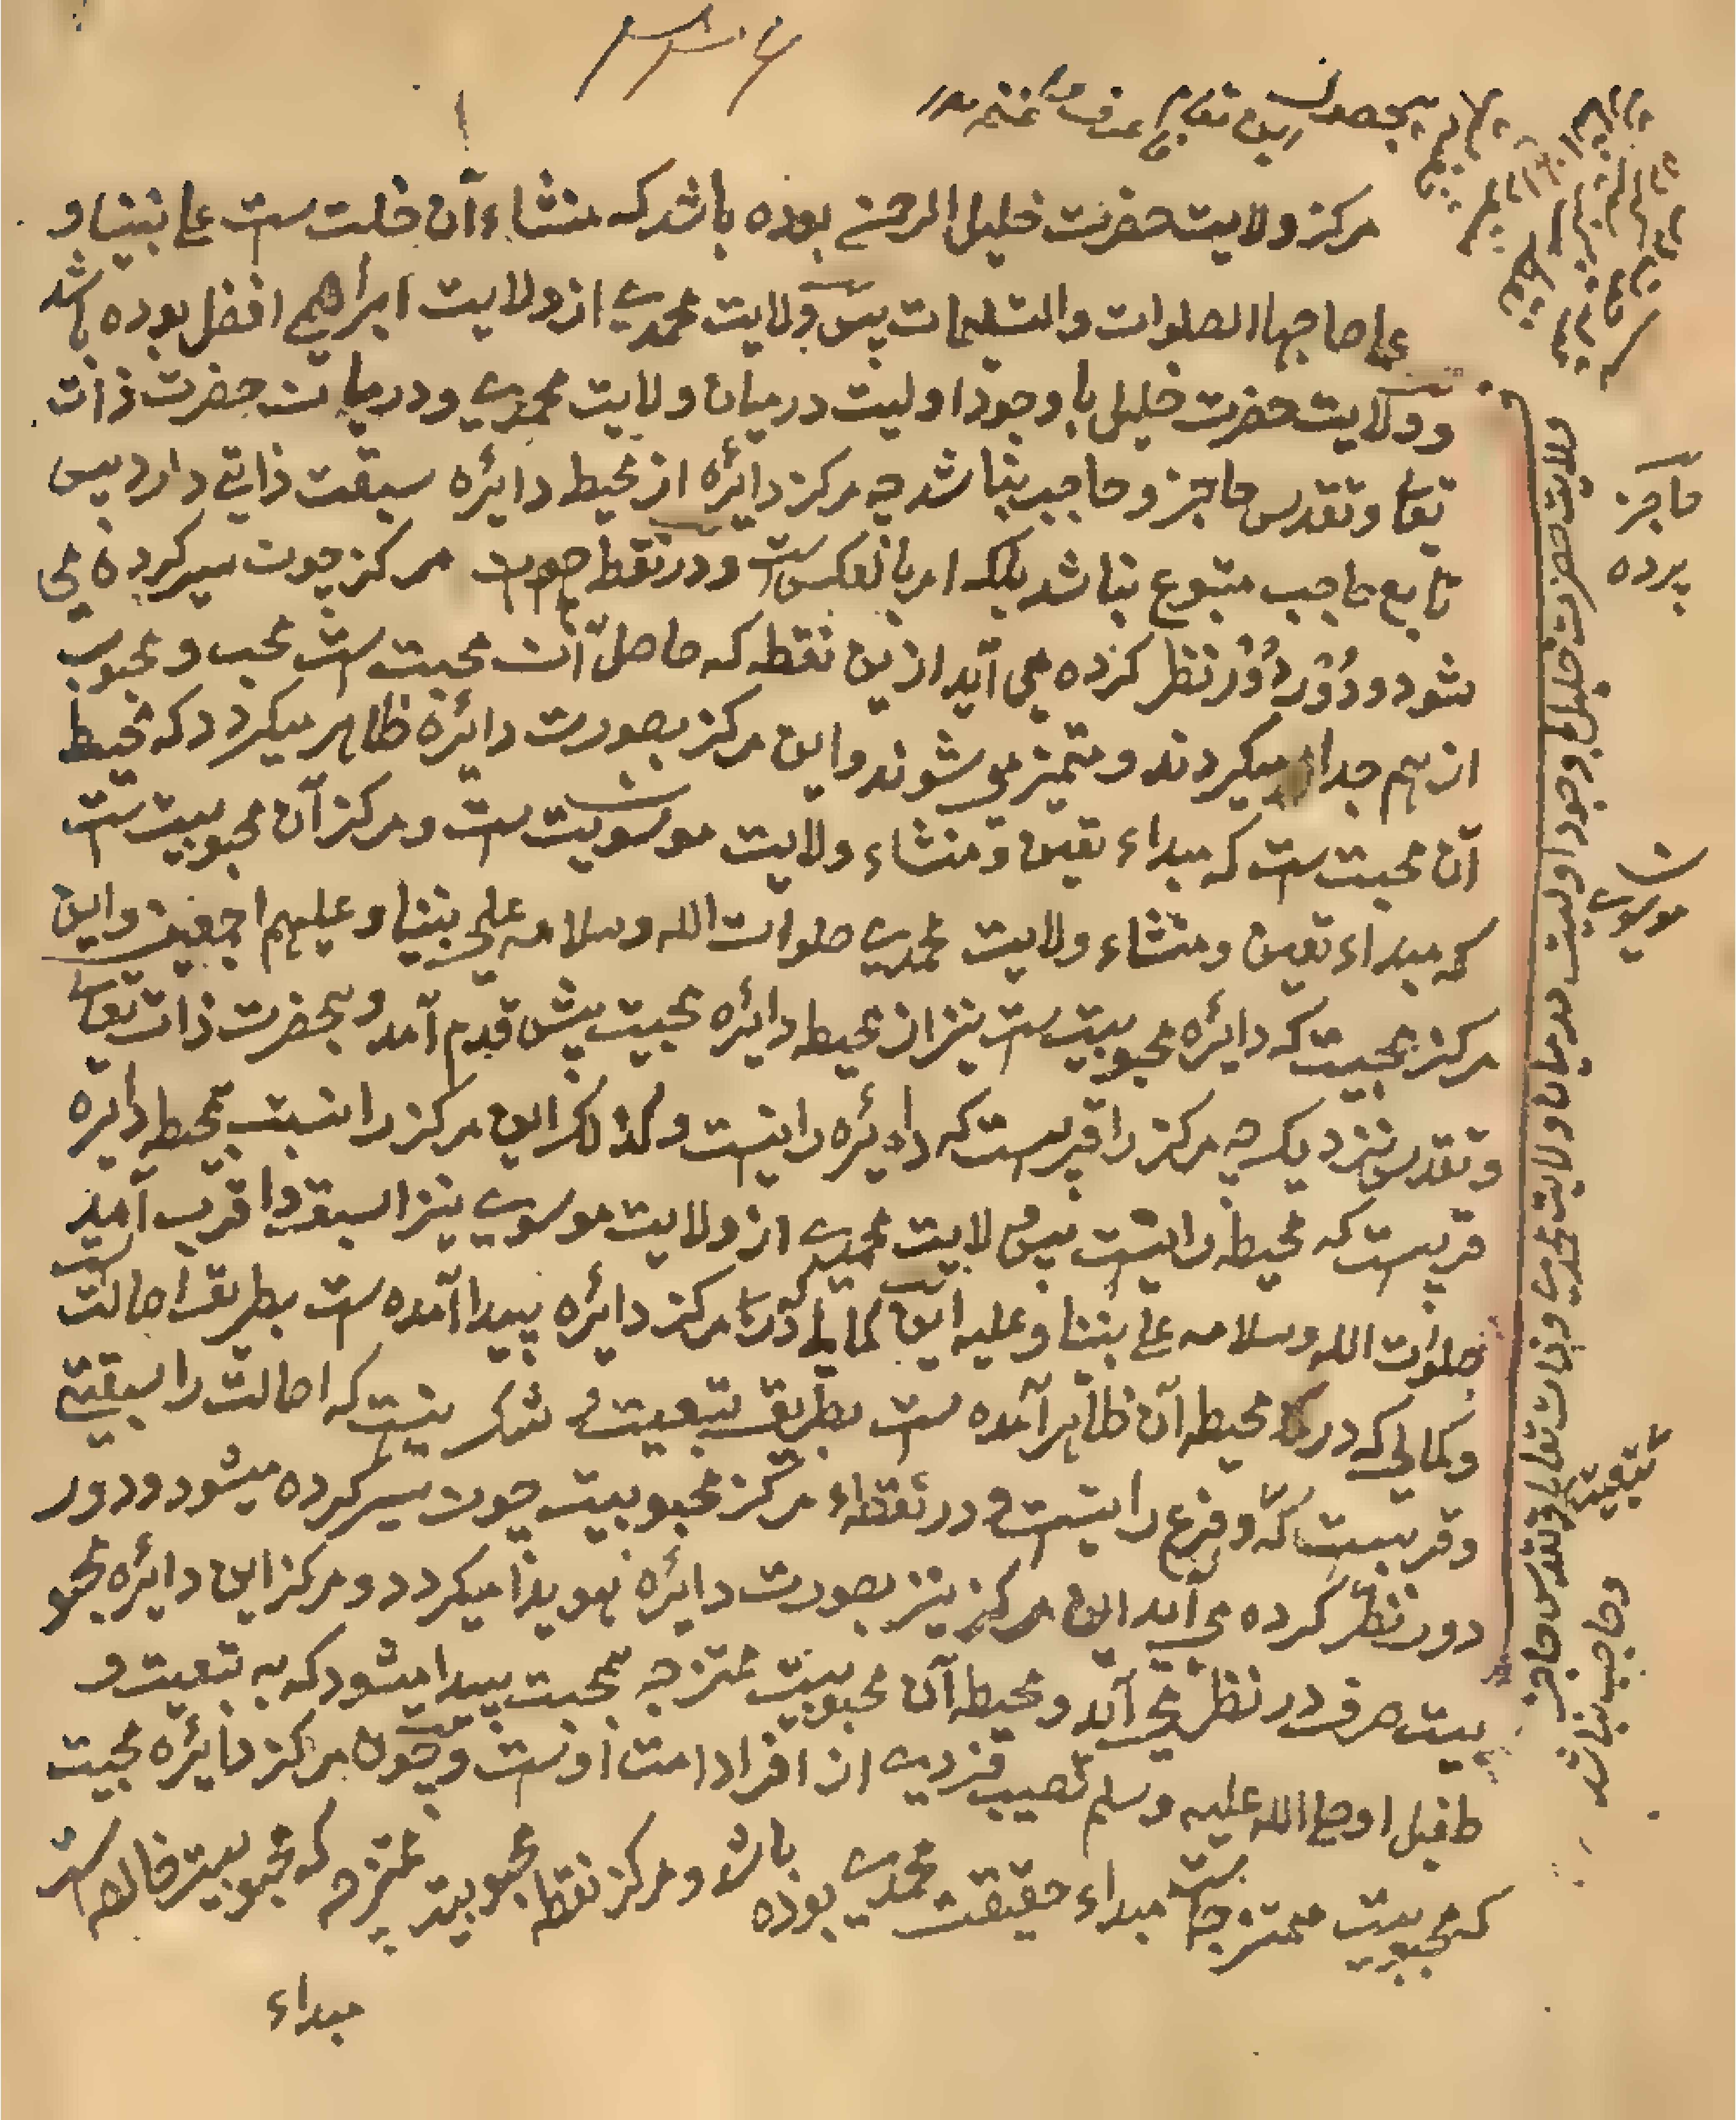 مرکز ولایت حضرت خلیل الرحمن بوده باشد که منشاء آن خلت ست علی نبینا و
علی صاحبها الصلوات والتسلیمات پس ولایت محمدی از ولایت ابراهیمی افضل بوده باشد
و ولایت حضرت خلیل با وجود اولیت درمیان ولایت محمدی و درمیان حضرت ذات
تعا و تقدس حاجز و حاجب نباشد چه مرکز دایٔره از محیط دایره سبقت ذاتی دارد پس
تابع حاجب متبوع نباشد بلکه امر بالعکس ست و در نقطه مرکز چون سیر کرده می
شود و دُوْر دُوْر نظر کرده می آید ازین نقطه که حاصل آن محبت ست محب و محبوب
از هم جدا میکردند و متمیز می شوند و این مرکز بصورت دایٔره ظاهر میکردد که محیط
آن محبت ست که مبداء تعین و منشاء ولایت موسویت ست و مرکز آن محبوبیت ست
که مبداء تعین و منشاء ولایت محمدی صلوات الله وسلامه علی نبینا و علیهم اجمعین و این
مرکز محبیت که دایٔره محبوبیت ست نیز از محیط دایٔره محبیت پیش قدم آمد و بحضرت ذات تعا
و تقدس نزدیک چه مرکز را قربیست که دایٔره را نیست و کذلک این مرکز را نسبت بمحیط دایره
قربیست که محیط را نیست پس ولایت محمدی از ولایت موسوی نیز اسبق و اقرب آمد
صلوات الله وسلامه علی نبینا و علیه این کمالی که در مرکز دایٔره پیدا آمده ست بطریق اصالت ست
و کمالی که در محیط آن ظاهر آمده ست بطریق تبعیت و شک نیست که اصالت را سبقتی
و قربیست که فرع را نیست و در نقطهٔ مرکز محبوبیت چون سیر کرده میشود و دور
دور نظر کرده می آید این مرکز نیز بصورت دایٔره هویدا میکردد و مرکز این دایٔره محبو
بیت صرف در نظر می آید و محیط آن محبوبیت ممتزجه بمحبت پیدا میشود که به تبعیت و
طفیل او صلی الله علیه وسلم نصیب فردی از افراد امت اوست و چون مرکز دایٔره محبیت
که محبوبیت ممتزجه است مبداء حقیقت محمدی بوده باشد و مرکز نقطه محبوبیت ممتزجه که محبوبیت خالصه است
مبداء
ولایت حضرت خلیل با وجود اولیت درمیان ولایت محمدی و ذات تعالی و تقدس حاجز
و حاجب نباشد
حاجز
پرده
موسوی
تبعیت